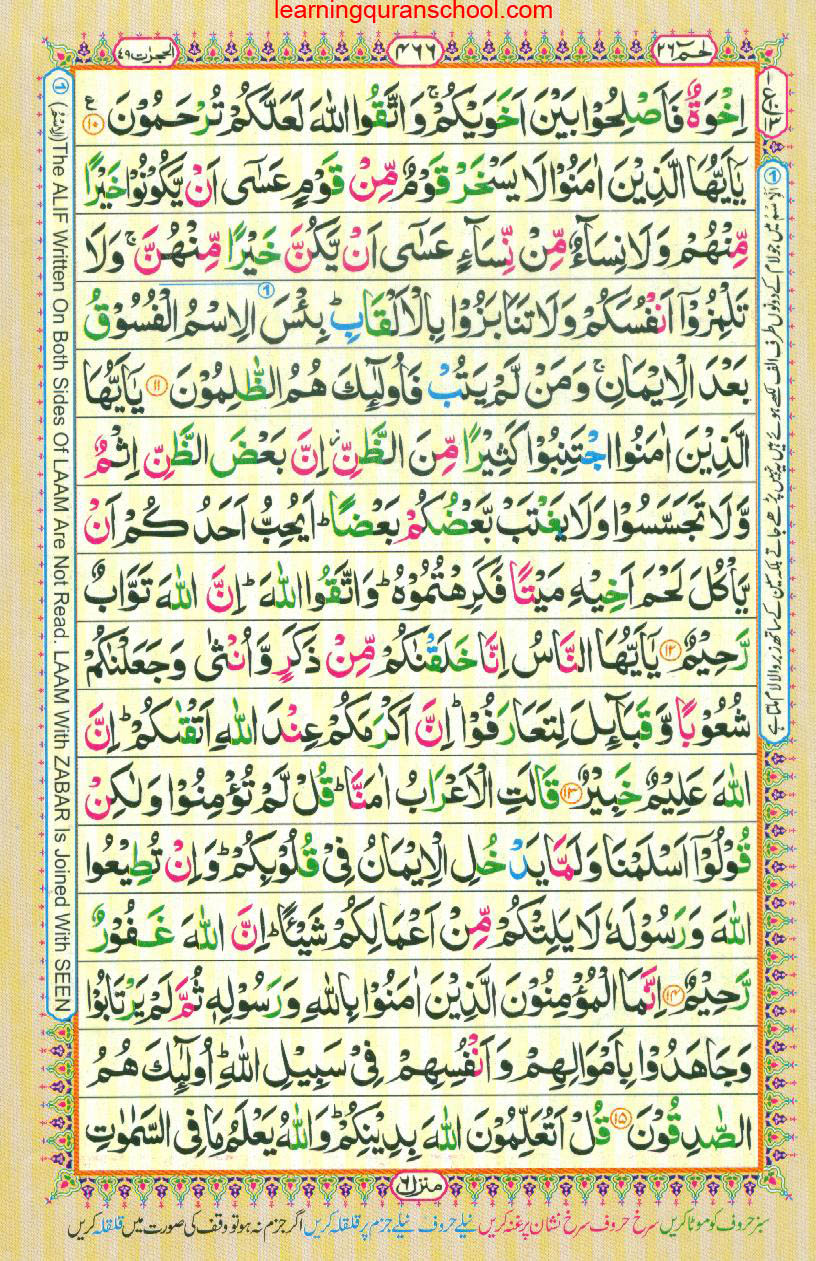 learningquranschool.com
الحجرات ٤٩
٤٦٦
حٰمٓ ٢٦
اِخْوَةٌ فَاَصْلِحُوْا بَيْنَ اَخَوَيْكُمْ ۚ وَ اتَّقُوا اللّٰهَ لَعَلَّكُمْ تُرْحَمُوْنَ ۱۰ ع
يٰۤاَيُّهَا الَّذِيْنَ اٰمَنُوْا لَا يَسْخَرْ قَوْمٌ مِّنْ قَوْمٍ عَسٰۤى اَنْ يَّكُوْنُوْا خَيْرًا
مِّنْهُمْ وَ لَا نِسَآءٌ مِّنْ نِّسَآءٍ عَسٰۤى اَنْ يَّكُنَّ خَيْرًا مِّنْهُنَّ ۚ وَ لَا
تَلْمِزُوْۤا اَنْفُسَكُمْ وَ لَا تَنَابَزُوْا بِالْاَلْقَابِ ؕ بِئْسَ الِاسْمُ الْفُسُوْقُ
بَعْدَ الْاِيْمَانِ ۚ وَ مَنْ لَّمْ يَتُبْ فَاُولٰٓئِكَ هُمُ الظّٰلِمُوْنَ ۱۱ يٰۤاَيُّهَا
الَّذِيْنَ اٰمَنُوا اجْتَنِبُوْا كَثِيْرًا مِّنَ الظَّنِّ ؗ اِنَّ بَعْضَ الظَّنِّ اِثْمٌ
وَّ لَا تَجَسَّسُوْا وَ لَا يَغْتَبْ بَّعْضُكُمْ بَعْضًا ؕ اَيُحِبُّ اَحَدُكُمْ اَنْ
يَّاْكُلَ لَحْمَ اَخِيْهِ مَيْتًا فَكَرِهْتُمُوْهُ ؕ وَ اتَّقُوا اللّٰهَ ؕ اِنَّ اللّٰهَ تَوَّابٌ
رَّحِيْمٌ ۱۲ يٰۤاَيُّهَا النَّاسُ اِنَّا خَلَقْنٰكُمْ مِّنْ ذَكَرٍ وَّ اُنْثٰى وَ جَعَلْنٰكُمْ
شُعُوْبًا وَّ قَبَآئِلَ لِتَعَارَفُوْا ؕ اِنَّ اَكْرَمَكُمْ عِنْدَ اللّٰهِ اَتْقٰىكُمْ ؕ اِنَّ
اللّٰهَ عَلِيْمٌ خَبِيْرٌ ۱۳ قَالَتِ الْاَعْرَابُ اٰمَنَّا ؕ قُلْ لَّمْ تُؤْمِنُوْا وَ لٰكِنْ
قُوْلُوْۤا اَسْلَمْنَا وَ لَمَّا يَدْخُلِ الْاِيْمَانُ فِيْ قُلُوْبِكُمْ ؕ وَ اِنْ تُطِيْعُوا
اللّٰهَ وَ رَسُوْلَهٗ لَا يَلِتْكُمْ مِّنْ اَعْمَالِكُمْ شَيْـًٔا ؕ اِنَّ اللّٰهَ غَفُوْرٌ
رَّحِيْمٌ ۱۴ اِنَّمَا الْمُؤْمِنُوْنَ الَّذِيْنَ اٰمَنُوْا بِاللّٰهِ وَ رَسُوْلِهٖ ثُمَّ لَمْ يَرْتَابُوْا
وَ جَاهَدُوْا بِاَمْوَالِهِمْ وَ اَنْفُسِهِمْ فِيْ سَبِيْلِ اللّٰهِ ؕ اُولٰٓئِكَ هُمُ
الصّٰدِقُوْنَ ۱۵ قُلْ اَتُعَلِّمُوْنَ اللّٰهَ بِدِيْنِكُمْ ؕ وَ اللّٰهُ يَعْلَمُ مَا فِي السَّمٰوٰتِ
① (اَلِاسْمُ) The ALIF Written On Both Sides Of LAAM Are Not Read. LAAM With ZABAR Is Joined With SEEN
منزل ٦
سبز حروف کو موٹا کریں سرخ حروف سرخ نشان پر غنہ کریں نیلے حروف نیلے جزم پر قلقلہ کریں اگر جزم نہ ہو تو وقف کی صورت میں قلقلہ کریں